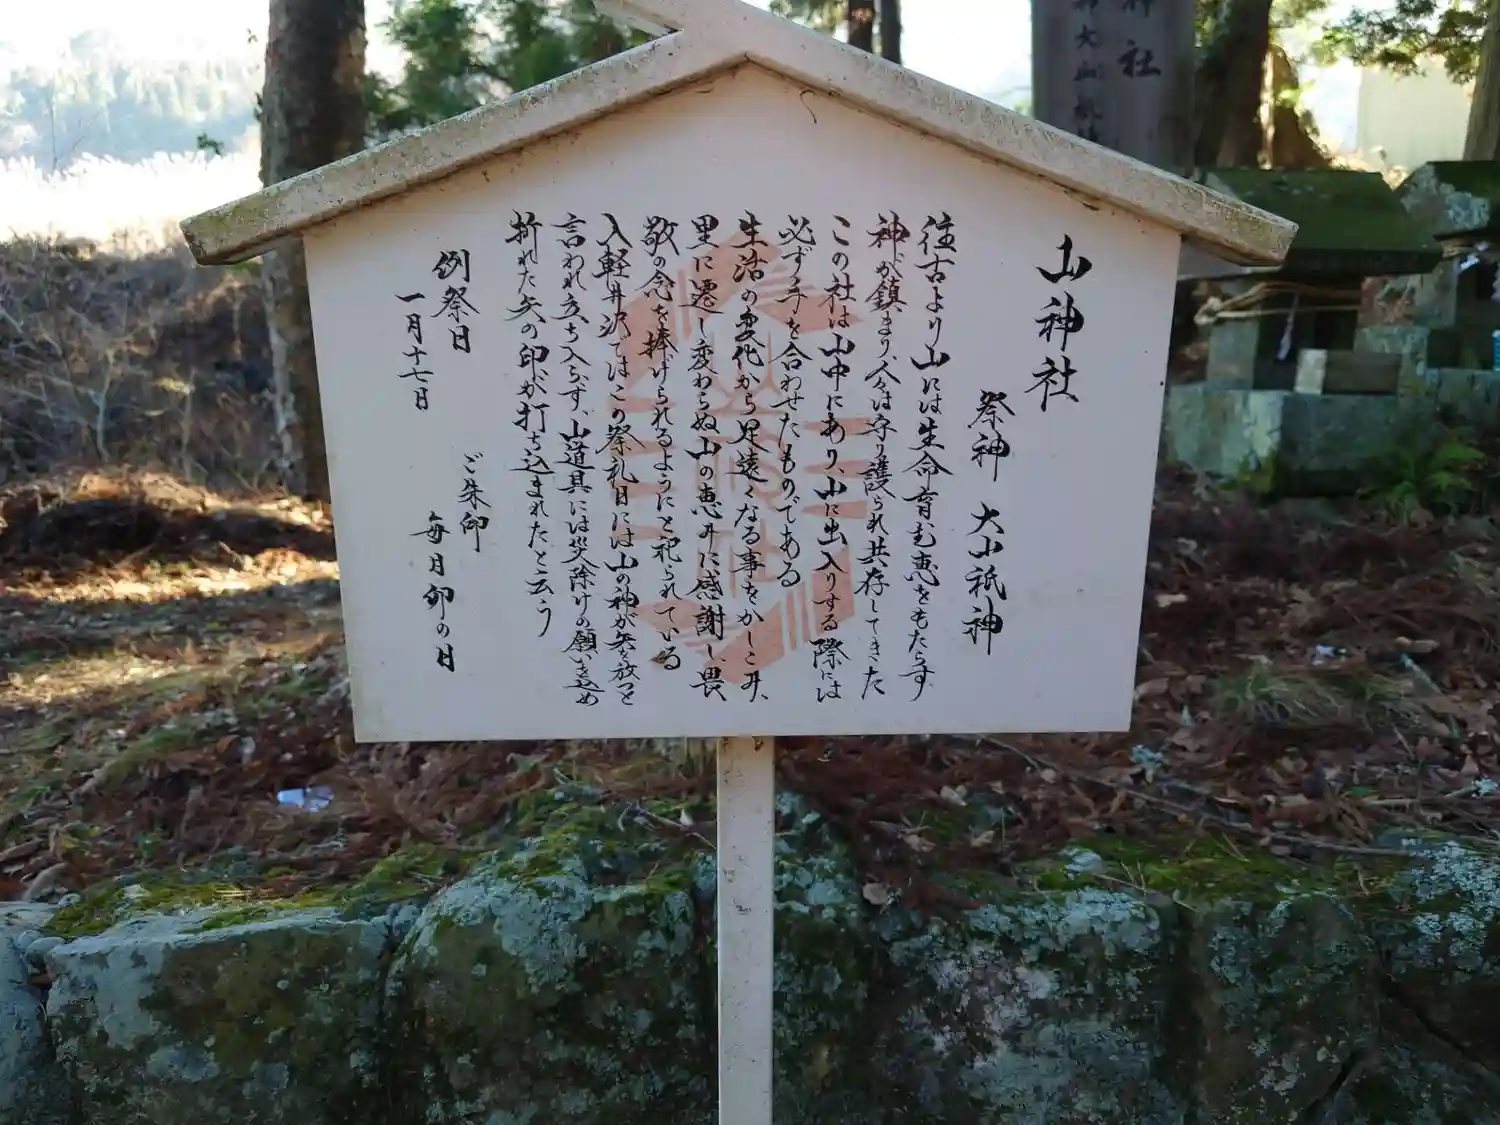 山神社
祭神 大山祇神
往古より山には生命育む恵をもたらす
神が鎮まり、人々は守り護られ共存してきた
この社は山中にあり、山に出入りする際には
必ず手を合わせたものである
生活の変化から足遠くなる事をかしこみ、
里に遷し変わらぬ山の恵みに感謝し畏
敬の念を捧げられるようにと祀られている
入軽井沢ではこの祭礼日には山の神が矢を放つと
言われ立ち入らず、山道具には災除けの願い込め
折れた矢の印が打ち込まれたと云う
例祭日
一月十七日
ご朱印
毎月卯の日
神社